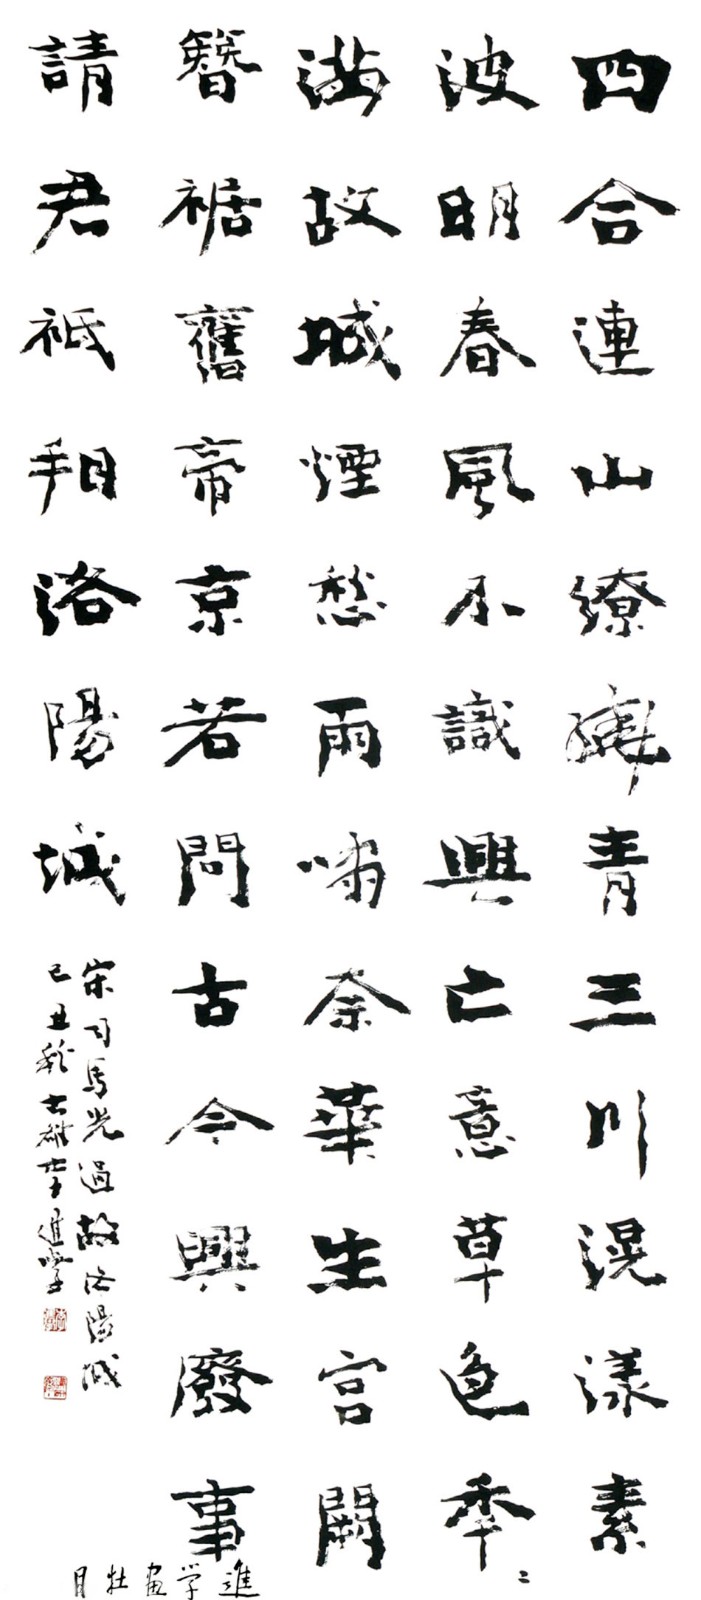 四合連山繚繞青三川滉漾素
波明春風不識興亡意草色年〻
滿故城煙愁雨嘯奈華生宮闕
簪裾舊帝京若問古今興廢事
請君祇看洛陽城
宋司馬光過故洛陽城
己丑秋古雄李進學
進学畫牡丹